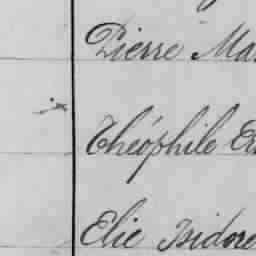 Pierre Ma
Théophile
Elie Isidore